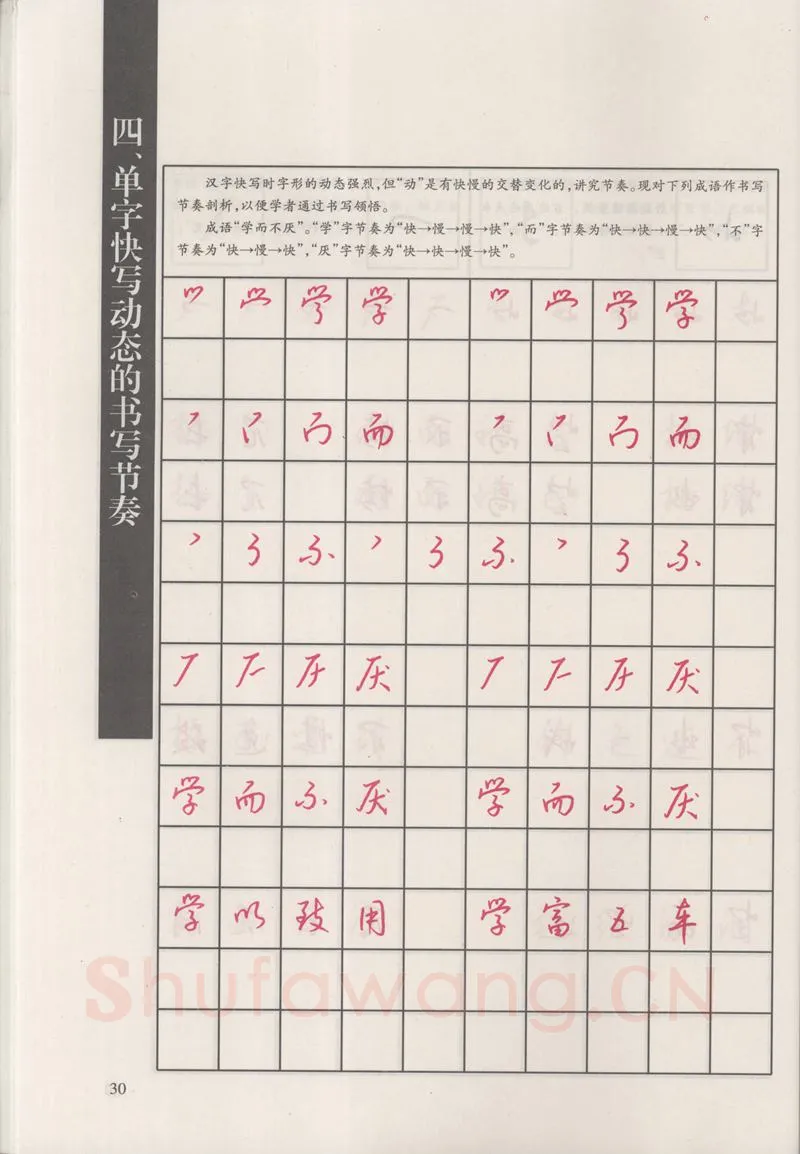 四、单字快写动态的书写节奏
汉字快写时字形的动态强烈,但“动”是有快慢的交替变化的,讲究节奏。现对下列成语作书写
节奏剖析,以便学者通过书写领悟。
成语“学而不厌”。“学”字节奏为“快→慢→慢→快”,“而”字节奏为“快→快→慢→快”,“不”字
节奏为“快→慢→快”,“厌”字节奏为“快→快→慢→快”。
学 学
而 而
不 不 不
厌 厌
学 而 不 厌 学 而 不 厌
学 以 致 用 学 富 五 车
Shufawang.CN
30